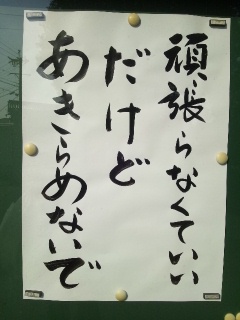 頑張らなくていい
だけど
あきらめないで